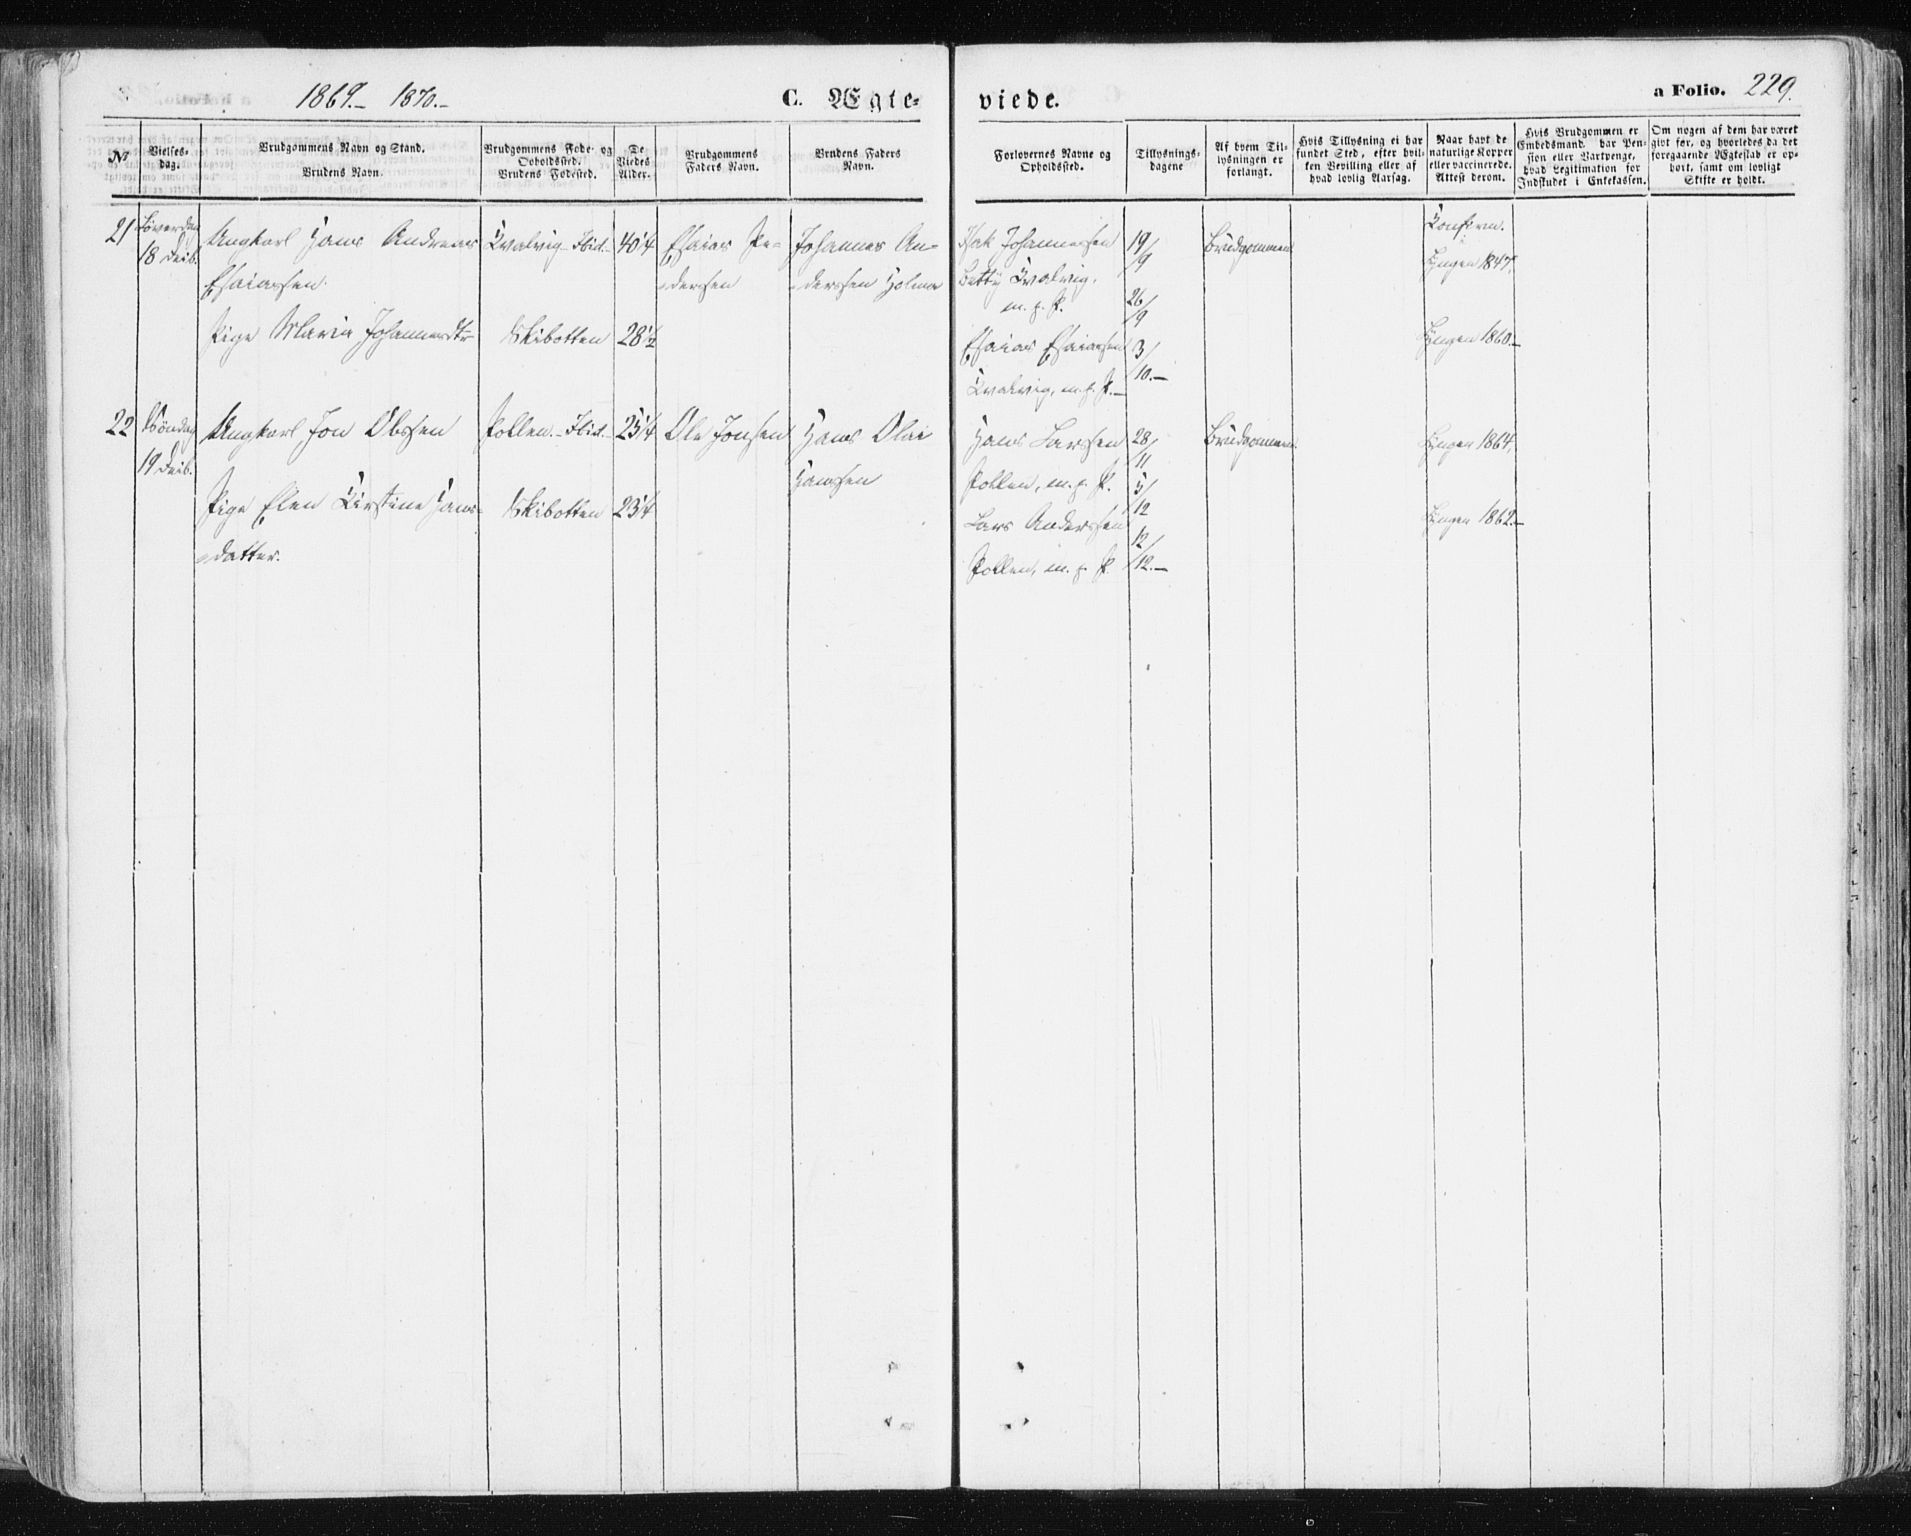 1869.- 1870.-
C. Ægte-
viede.
a Folio. 229.
No
Vielses-
dag.
Brudgommens Navn og Stand.
Brudens Navn.
Brudgommens Føde- og
Opholdssted.
Brudens Fødested.
De
Viedes
Alder.
Brudgommens
Faders Navn.
Brudens Faders
Navn.
Forlovernes Navne og
Opholdssted.
Tillysnings-
dagene
Af hvem Til-
lysningen er
forlangt.
Hvis Tillysning ei har
fundet Sted, efter hvil-
ken Bevilling eller af
hvad lovlig Aarsag.
Naar havt de
naturlige Kopper
eller vaccinerede.
Attest derom.
Hvis Brudgommen er
Embedsmand, har Pen-
sion eller Vartpenge,
hvad Legitimation for
Indskudet i Enkekassen.
Om nogen af dem har været
gift før, og hvorledes da det
foregaaende Ægteskab er op-
hørt, samt om lovligt
Skifte er holdt.
21
Løverdag
18 Decb.
Ungkarl Hans Andreas
Esaiassen.
Pige Maria Johannesdtr
Kvalvig - Ibid.-
Skibotten
40 1/4
28 1/2
Esaias Pe-
dersen
Johannes An-
derssen Holm
Isak Johannessen
Kvalvig,
m. f. P.
Esaias Esaiassen
Kvalvig, m. f. P.-
19/9
26/9
3/10.-
Brudgommen
Confirm.
Lyngen 1847.
Lyngen 1860.-
22
Søndag
19 Decb.
Ungkarl Jon Olssen
Pige Elen Kirstine Hans-
datter.
Pollen.- Ibid.-
Skibotten
25 1/4
23 1/4
Ole Jonsen
Hans Olai
Hanssen
Hans Larssen
Pollen, m. f. P.
Lars Anderssen
Pollen, m. f. P.
28/11
5/12
12/12.-
Brudgommen
Lyngen 1864.
Lyngen 1862.-